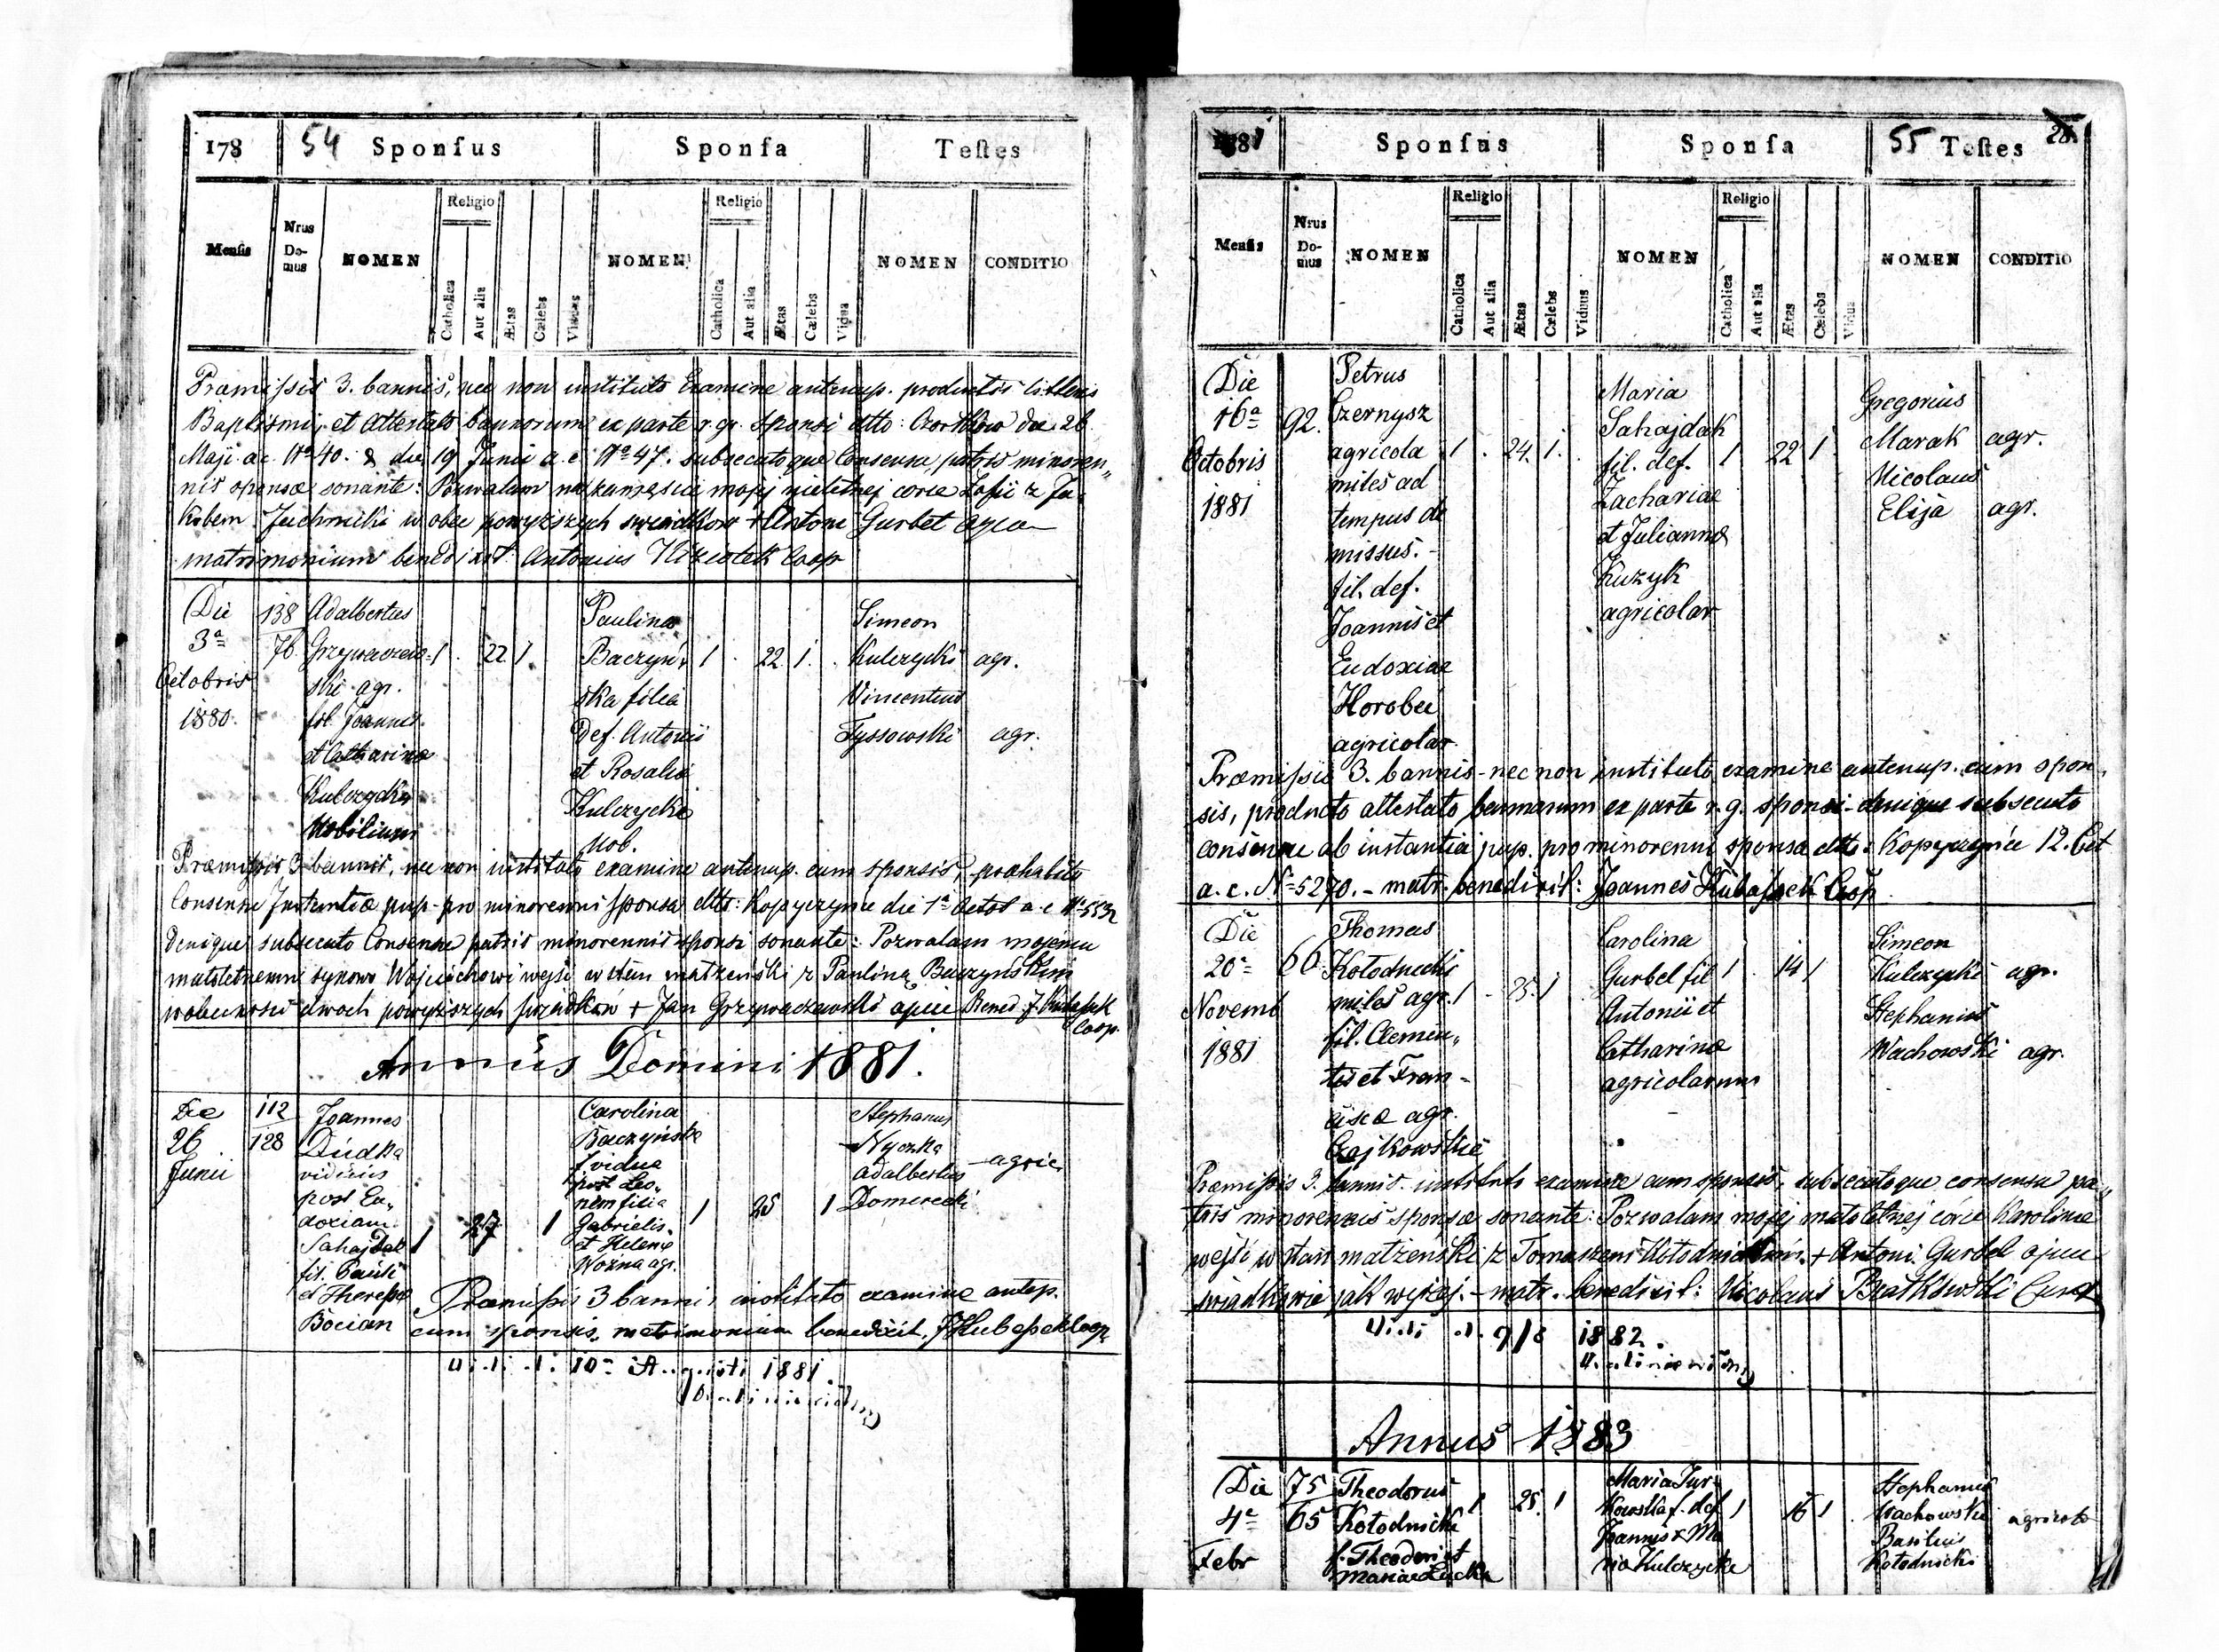 178 54 Sponſus Sponſa Teſtes
Menſis Nrus Do-mus NOMEN Religio Catholica Aut alia Ætas Cælebs Viduus NOMEN Religio Catholica Aut alia Ætas Cælebs Vidua NOMEN CONDITIO
Præmissis 3. bannis, nec non instituto Examine antenup. productis litteris
Baptismi, et Attestato bannorum ex parte r. gr. Sponsi ddto: Czortków die 26
Maji a.c. No 40. & die 19 Junii a. c. No 47. subsecutoque Consensu patris minoren„
nis sponsæ sonante: Pozwalam na mojej nieletniej córce Zofii z Ja„
kóbem Juchnicki wobec powyższych świadków + Antoni Gurbel ojciec
matrimonium benedixit: Antonius Coop
Die 138 Adalbertus Paulina Simeon
3a 76 Grzywaczew= 1 . 22 1. Baczyń„ 1 . 22 1. Kulczycki agr.
Octobris ski agr. ska filia Vincentius
1880. fil. Joannis Def. Antonii Tyssowski agr.
et Catharinæ et Rosaliæ
Kulczycka Kulczycki
Nobilium Nob.
Præmissis 3 bannis, nec non instituto examine antenup. cum sponsis, præhabito
Consensu Instantiæ pup. pro minorenni sponsa ddto: Kopyczyńce die 1a Octob a. c No 5532
Denique subsecuto Consensu patris minorennis sponsi sonante: Pozwalam mojemu
małoletniemu synowi Wojciechowi wejść w stan małżeński z Pauliną Baczyńskim
w obecności dwóch powyższych świadków + Jan Grzywaczewski ojciec Bened. J. Kubassek
Coop.
Annus Domini 1881.
Die 112 Joannes Carolina Stephanus
26 128 Dudka Baczyńska Nyczka
Junii viduus vidua Adalbertus agric.
post Eu„ post Leo„ Domerecki
doxiam nem filia
Sahajdak 1 27 1 Gabrielis 1 25 1
fil. Pauli et Helenæ
et Theresæ Woźna agr.
Bocian
Præmissis 3 bannis instituto examine antep.
cum sponsis, matrimonium benedixit. J. Kubassek Coop.
10a Augusti 1881.
1781 Sponſus Sponſa 55 Teſtes 28
Menſis Nrus Do-mus NOMEN Religio Catholica Aut alia Ætas Cælebs Viduus NOMEN Religio Catholica Aut alia Ætas Cælebs Vidua NOMEN CONDITIO
Die Petrus Maria Gregorius
16a 92. Czernysz Sahajdak Marak agr.
Octobris agricola 1 . 24. 1. fil. def. 1 22 1 Nicolaus
1881 miles ad Zachariae Elija agr.
tempus di et Juliannæ
missus.- Kuzyk
fil. def. agricolar
Joannis et
Eudoxiae
Horobec
agricolar.
Præmissis 3. bannis - nec non instituto examine antenup. cum spon„
sis, producto attestato bannorum ex parte r. g. sponsi - denique subsecuto
consensu ab instantia pup. pro minorenni sponsa ddto: Kopyczyńce 12. Oct
a. c. No 5270. - matr. benedixit: Joannes Kubassek Coop
Die Thomas Carolina Simeon
20a 66 Kołodnicki Gurbel fil 1 . 14 1 Kulczycki agr.
Novemb miles agr. 1 - 25. 1 Antonii et Stephanus
1881 fil. Clemen„ Catharinæ Wachowski agr.
tis et Fran- agricolarum
ciscæ agr.
Czajkowskie
Præmissis 3. bannis. instituto examine cum sponsis, subsecutoque consensu pa„
tris minorennis sponsæ sonante: Pozwalam mojej małoletniej córce Karolinie
wejść w stan małżeński z Tomaszem Kołodnickim. + Antoni Gurbel ojciec
świadkowie jak wyżej. - matr. benedixit: Nicolaus Bratkowski Curat
9/8 1882.
Annus 1883
Die 75 Theodorus Maria Tur„ Stephanus
4a 65 Kołodnicki 1 25. 1 kowska f. def 1 16 1 Wachowski agricolæ
Febr f. Theodori et Joannis & Ma Basilius
Mariæ Łucka riæ Kulczycke Kołodnicki